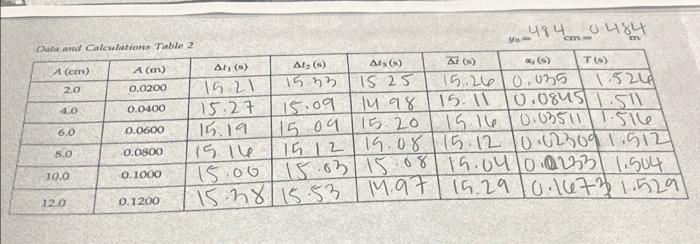 y₀ = 48.4 cm = 0.484 m
Data and Calculations Table 2
A (cm) A (m) Δt₁ (s) Δt₂ (s) Δt₃ (s) Δt̄ (s) αₜ (s) T (s)
2.0 0.0200 15.21 15.33 15.25 15.26 0.035 1.526
4.0 0.0400 15.27 15.09 14.98 15.11 0.0845 1.511
6.0 0.0600 15.19 15.09 15.20 15.16 0.03511 1.516
8.0 0.0800 15.16 15.12 15.08 15.12 0.02309 1.512
10.0 0.1000 15.00 15.03 15.08 15.04 0.0233 1.504
12.0 0.1200 15.38 15.53 14.97 15.29 0.1673 1.529